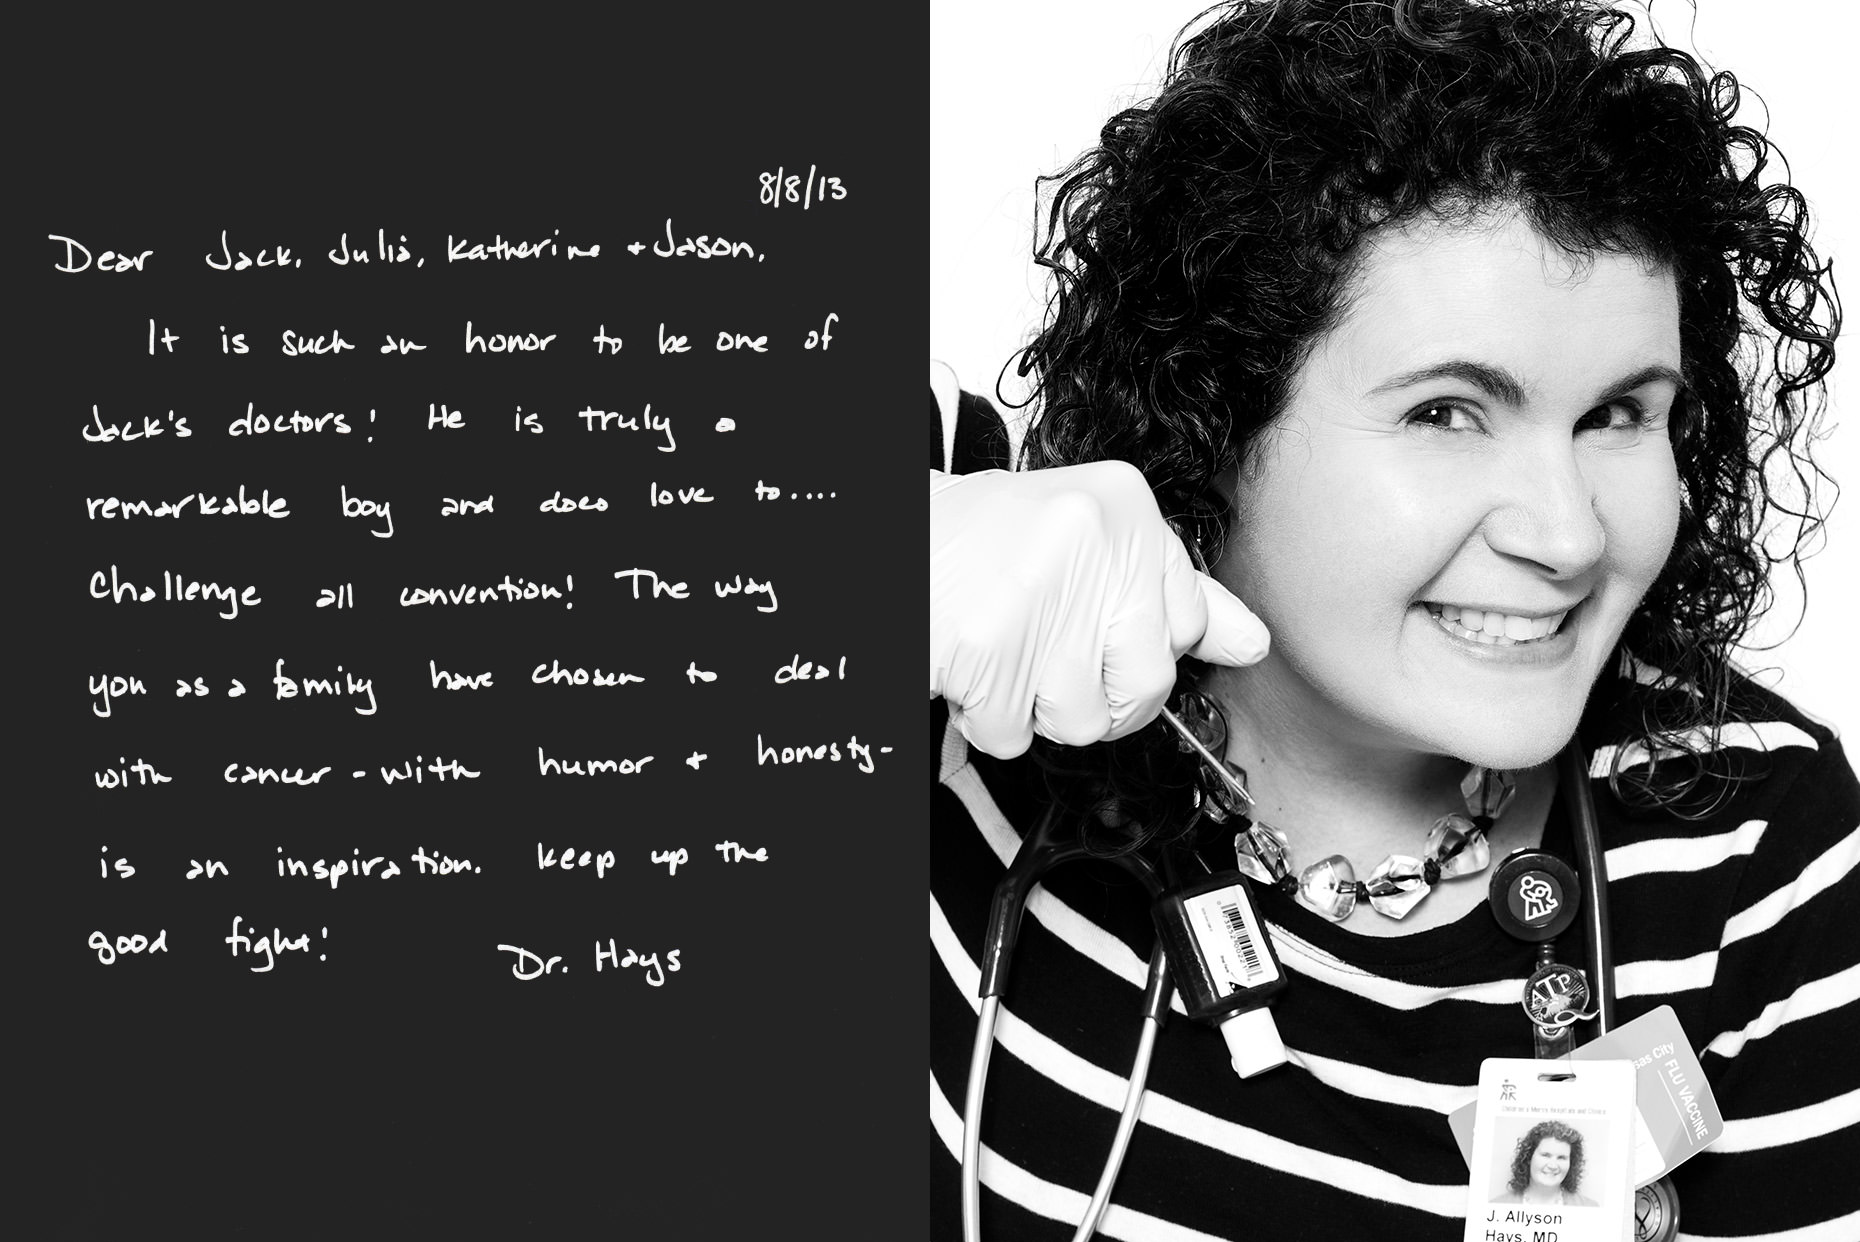 8/8/13
Dear Jack, Julia, Katherine + Jason,
It is such an honor to be one of
Jack's doctors! He is truly a
remarkable boy and does love to....
Challenge all convention! The way
you as a family have chosen to deal
with cancer - with humor + honesty -
is an inspiration. Keep up the
good fight!
Dr. Hays
ATP
sas City
FLU VACCINE
Children's Mercy Hospitals and Clinics
J. Allyson
Hays, MD